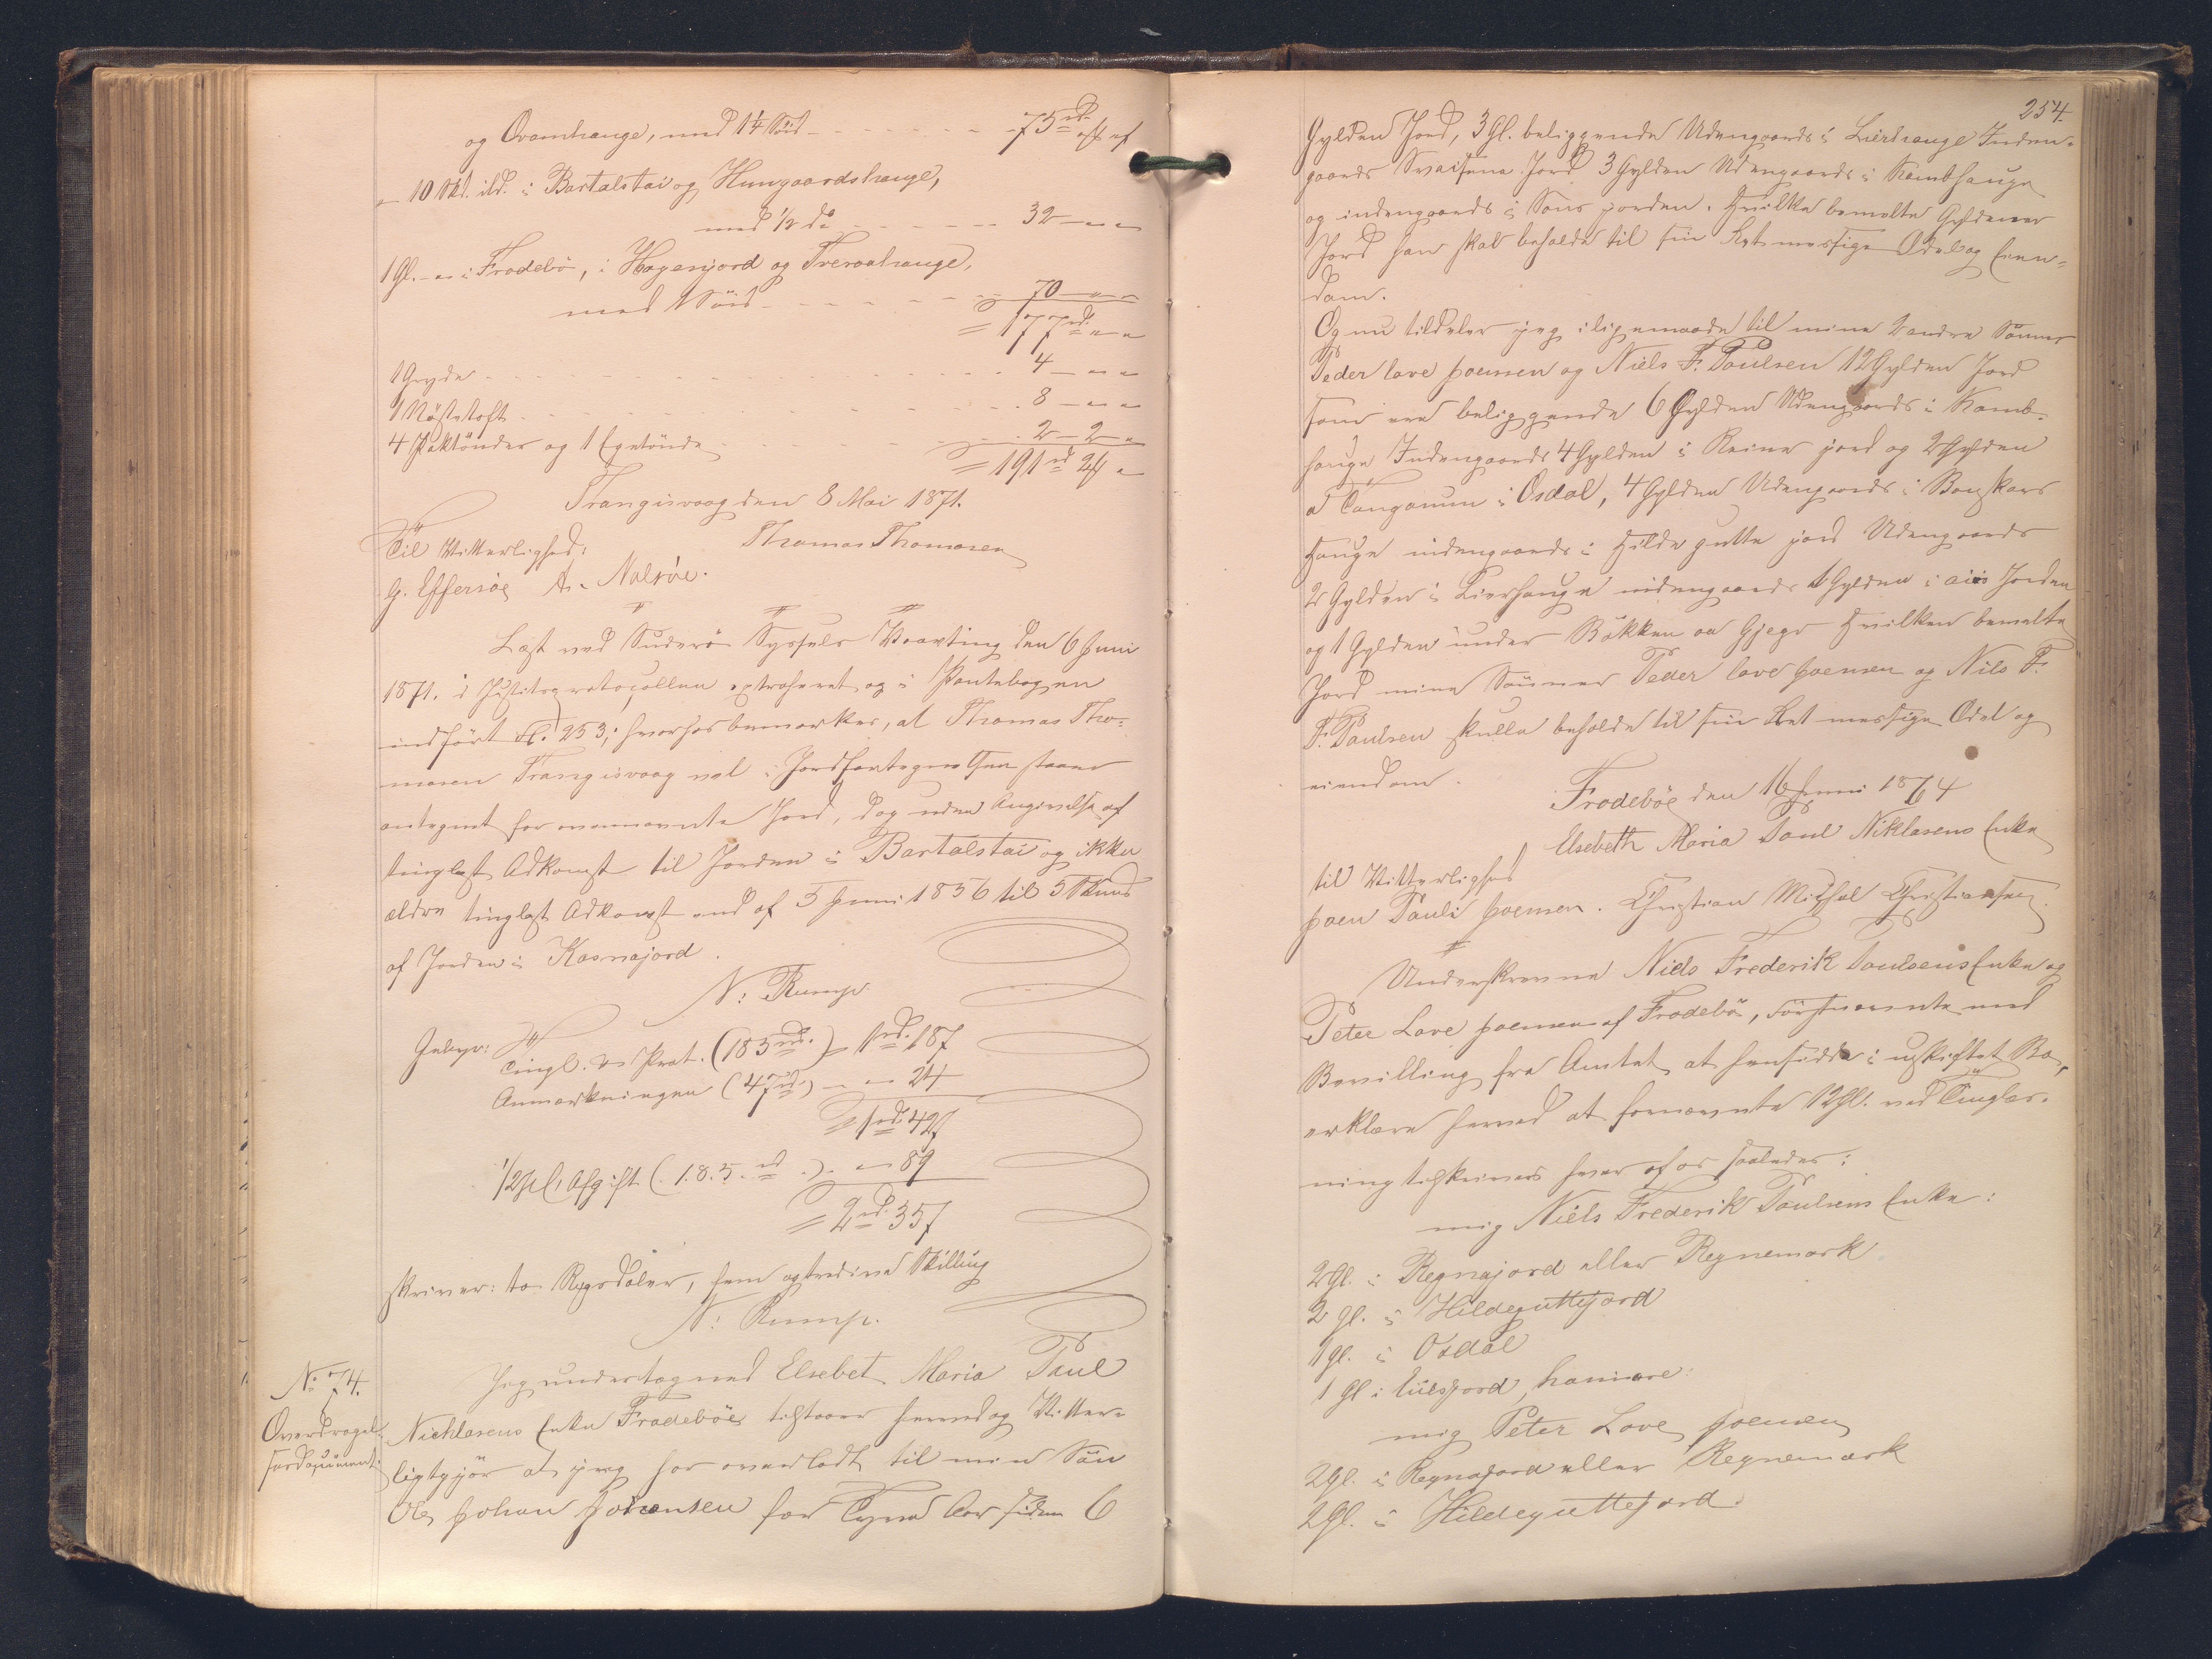 og Qvamhauge, med 1¼ Söid - - - - - - - 75 rd. " ß "
" 10 Skl. ibd. i Bartalstai og Hungaardshauge,
med ½ do - - - - - - 32 - " "
1 Gl. - " i Frodebö, i Hagenjord og Treraahauge,
med 1 Söid - - - - - - 70 - " "
= 177 rd. " "
1 Gryde - - - - - - 4 - " "
1 Nöstetoft - - - - - - 8 - " "
4 Saktönder og 1 Egetönde - - - - 2 - 2 "
= 191 rd 2 ß "
Trangisvaag den 8 Mai 1871.
Til Vitterlighed: Thomas Thomasen
G. Effersöe A. Nolsöe.
Læst ved Suderö Syssels Vaarting den 6 Juni
1871. i Justitsprotocollen extraheret og i Pantebogen
indfört Fl. 253; hvorhos bemærkes, at Thomas Tho-
masen Trangisvaag vel i Jordfortegnelsen staaer
antegnet for ovennævnte Jord, dog uden Angivelse af
tinglæst Adkomst til Jorden i Bartalstai og ikke
ældre tinglæst Adkomst end af 5 Juni 1856 til 5 Skind
af Jorden i Kasnajord.
N: Rump.
Gebyr: Tingl. og Prot. (183 rd.) - 1 rd. 18 ß
Anmærkningen (47 rd.) - " 24
= 1 rd. 42 ß
½ pCt. Afgift (185 rd.) - " 89
= 2 rd. 35 ß
skriver: to Rigsdaler, fem og tredive Skilling
N: Rump.
No. 74.
Overdragel-
sesdocument.
Jeg undertegned Elsebet Maria Paul
Nicklasens Enke Frodeböe tilstaaer herved og Vitter-
ligtgjör at jeg har overladt til min Sön
Ole Johan Joensen for Tyve Aar siden 6
254.
Gylden Jord, 3 Gl. beliggende Udengaards i Liershauge Inden-
gaards Jord 3 Gylden Udengaards i Kambhauge
og indengaards i jorden. Hvilke bemelte Gyldener
Jord han skal beholde til sin Ret messige Odel og Eien-
dom.
Og nu tildeler jeg iligemaade til mine 2 andre Sönner
Peder love Joensen og Niels F. Poulsen 12 Gylden Jord
som ere beliggende 6 Gylden Udengaards i Kamb-
hauge Indengaards 4 Gylden i Reine jord og 2 Gylden
a Tanganum i Osdal, 4 Gylden Udengaards i
Hauge indengaards i Hilde gutte jord Udengaards
2 Gylden i Liershauge indengaards 1 Gylden i Jorden
og 1 Gylden under Bakken oa Gjego Hvilken bemelte
Jord mine Sönner Peder love Joensen og Nils F.
F. Poulsen skulle beholde til sin Ret messige Odel og
eiendom.
Frodeböe den 16 Juni 1864
Elsebeth Maria Poul Niklasens Enke
til Vitterlighed
Joen Pauli Joensen. Christian Michal Christiansen.
Underskrevne Niels Frederik Poulsens Enke og
Peter Love Joensen af Frodebö, förstnævnte med
Bevilling fra Amtet at hensidde i uskiftet Bo,
erklære herved at fornævnte 12 Gl. ved Tinglæs-
ning tilskrives hver af os saaledes:
mig Niels Frederik Poulsens Enke:
2 Gl. i Regnajord eller Regnemark
2 gl. i Hildeguttejord
1 gl. i Osdal
1 gl i hamare
mig Peter Love Joensen
2 Gl. i Regnajord eller Regnemark
2 Gl. i Hildeguttejord.